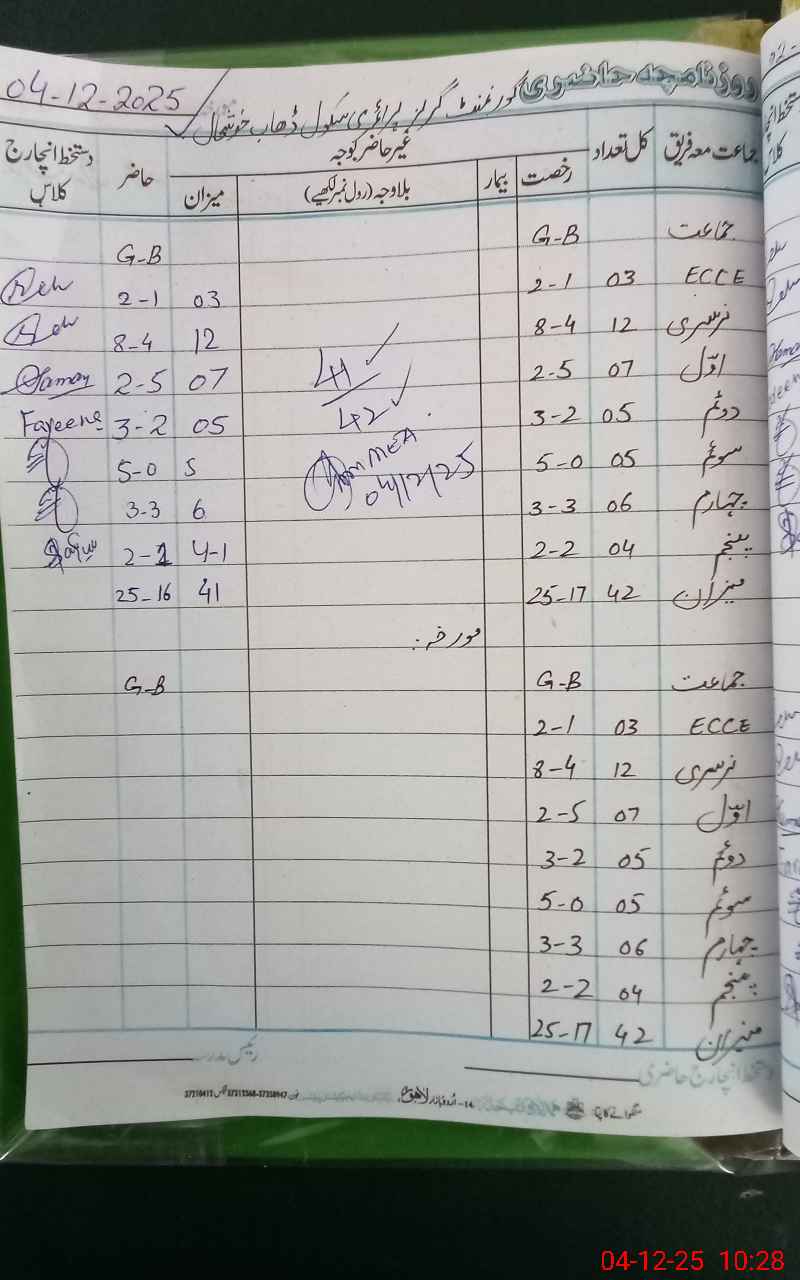 04-12-2025
روزنامچہ حاضری گورنمنٹ گرلز پرائمری سکول ڈھاب خوشحال
جماعت معہ فریق کل تعداد غیر حاضر کوجہ حاضر دستخط انچارج کلاس
رخصت بیمار بلاوجہ (رول نمبر لکھیے) میزان
جماعت G-B G-B
ECCE 03 2-1 03 2-1
نرسری 12 8-4 12 8-4
اوّل 07 2-5 07 2-5
دوئم 05 3-2 05 3-2 Fayeena
سوئم 05 5-0 5 5-0
چہارم 06 3-3 6 3-3
پنجم 04 2-2 4-1 2-1
میزان 42 25-17 41 25-16
41
42
MEA
04/12/25
مورخہ:
جماعت G-B G-B
ECCE 03 2-1
نرسری 12 8-4
اوّل 07 2-5
دوئم 05 3-2
سوئم 05 5-0
چہارم 06 3-3
پنجم 04 2-2
میزان 42 25-17
دستخط انچارج حاضری رئیس مدرسہ
14-اردو بازار لاہور
04-12-25 10:28